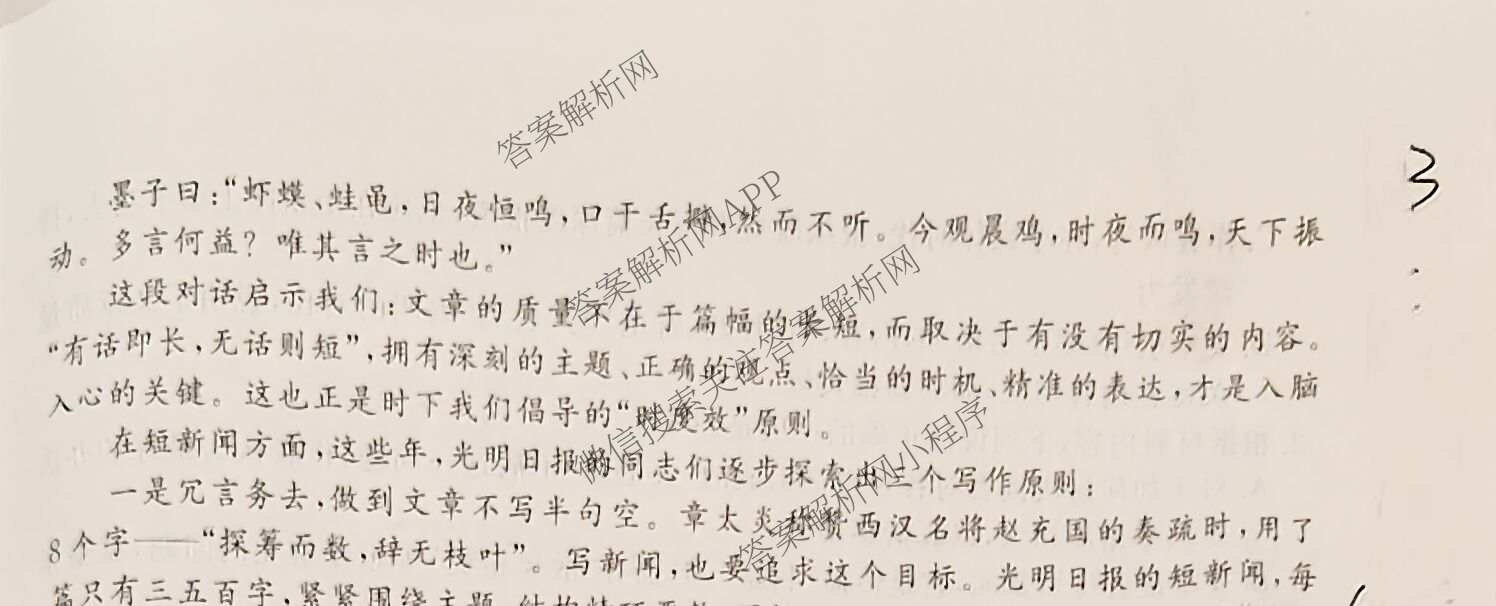 3
墨子曰：“虾蟆、蛙黾，日夜恒鸣，口干舌擗，然而不听。今观晨鸡，时夜而鸣，天下振
动。多言何益？唯其言之时也。”
这段对话启示我们：文章的质量不在于篇幅的长短，而取决于有没有切实的内容。
“有话即长，无话则短”，拥有深刻的主题、正确的观点、恰当的时机、精准的表达，才是入脑
入心的关键。这也正是时下我们倡导的“时度效”原则。
在短新闻方面，这些年，光明日报的同志们逐步探索出三个写作原则：
一是冗言务去，做到文章不写半句空。章太炎称赞西汉名将赵充国的奏疏时，用了
8个字——“探筹而数，辞无枝叶”。写新闻，也要追求这个目标。光明日报的短新闻，每
篇只有三五百字，紧紧围绕主题
答案解析网
答案解析网APP
微信搜索关注答案解析网
答案解析网小程序